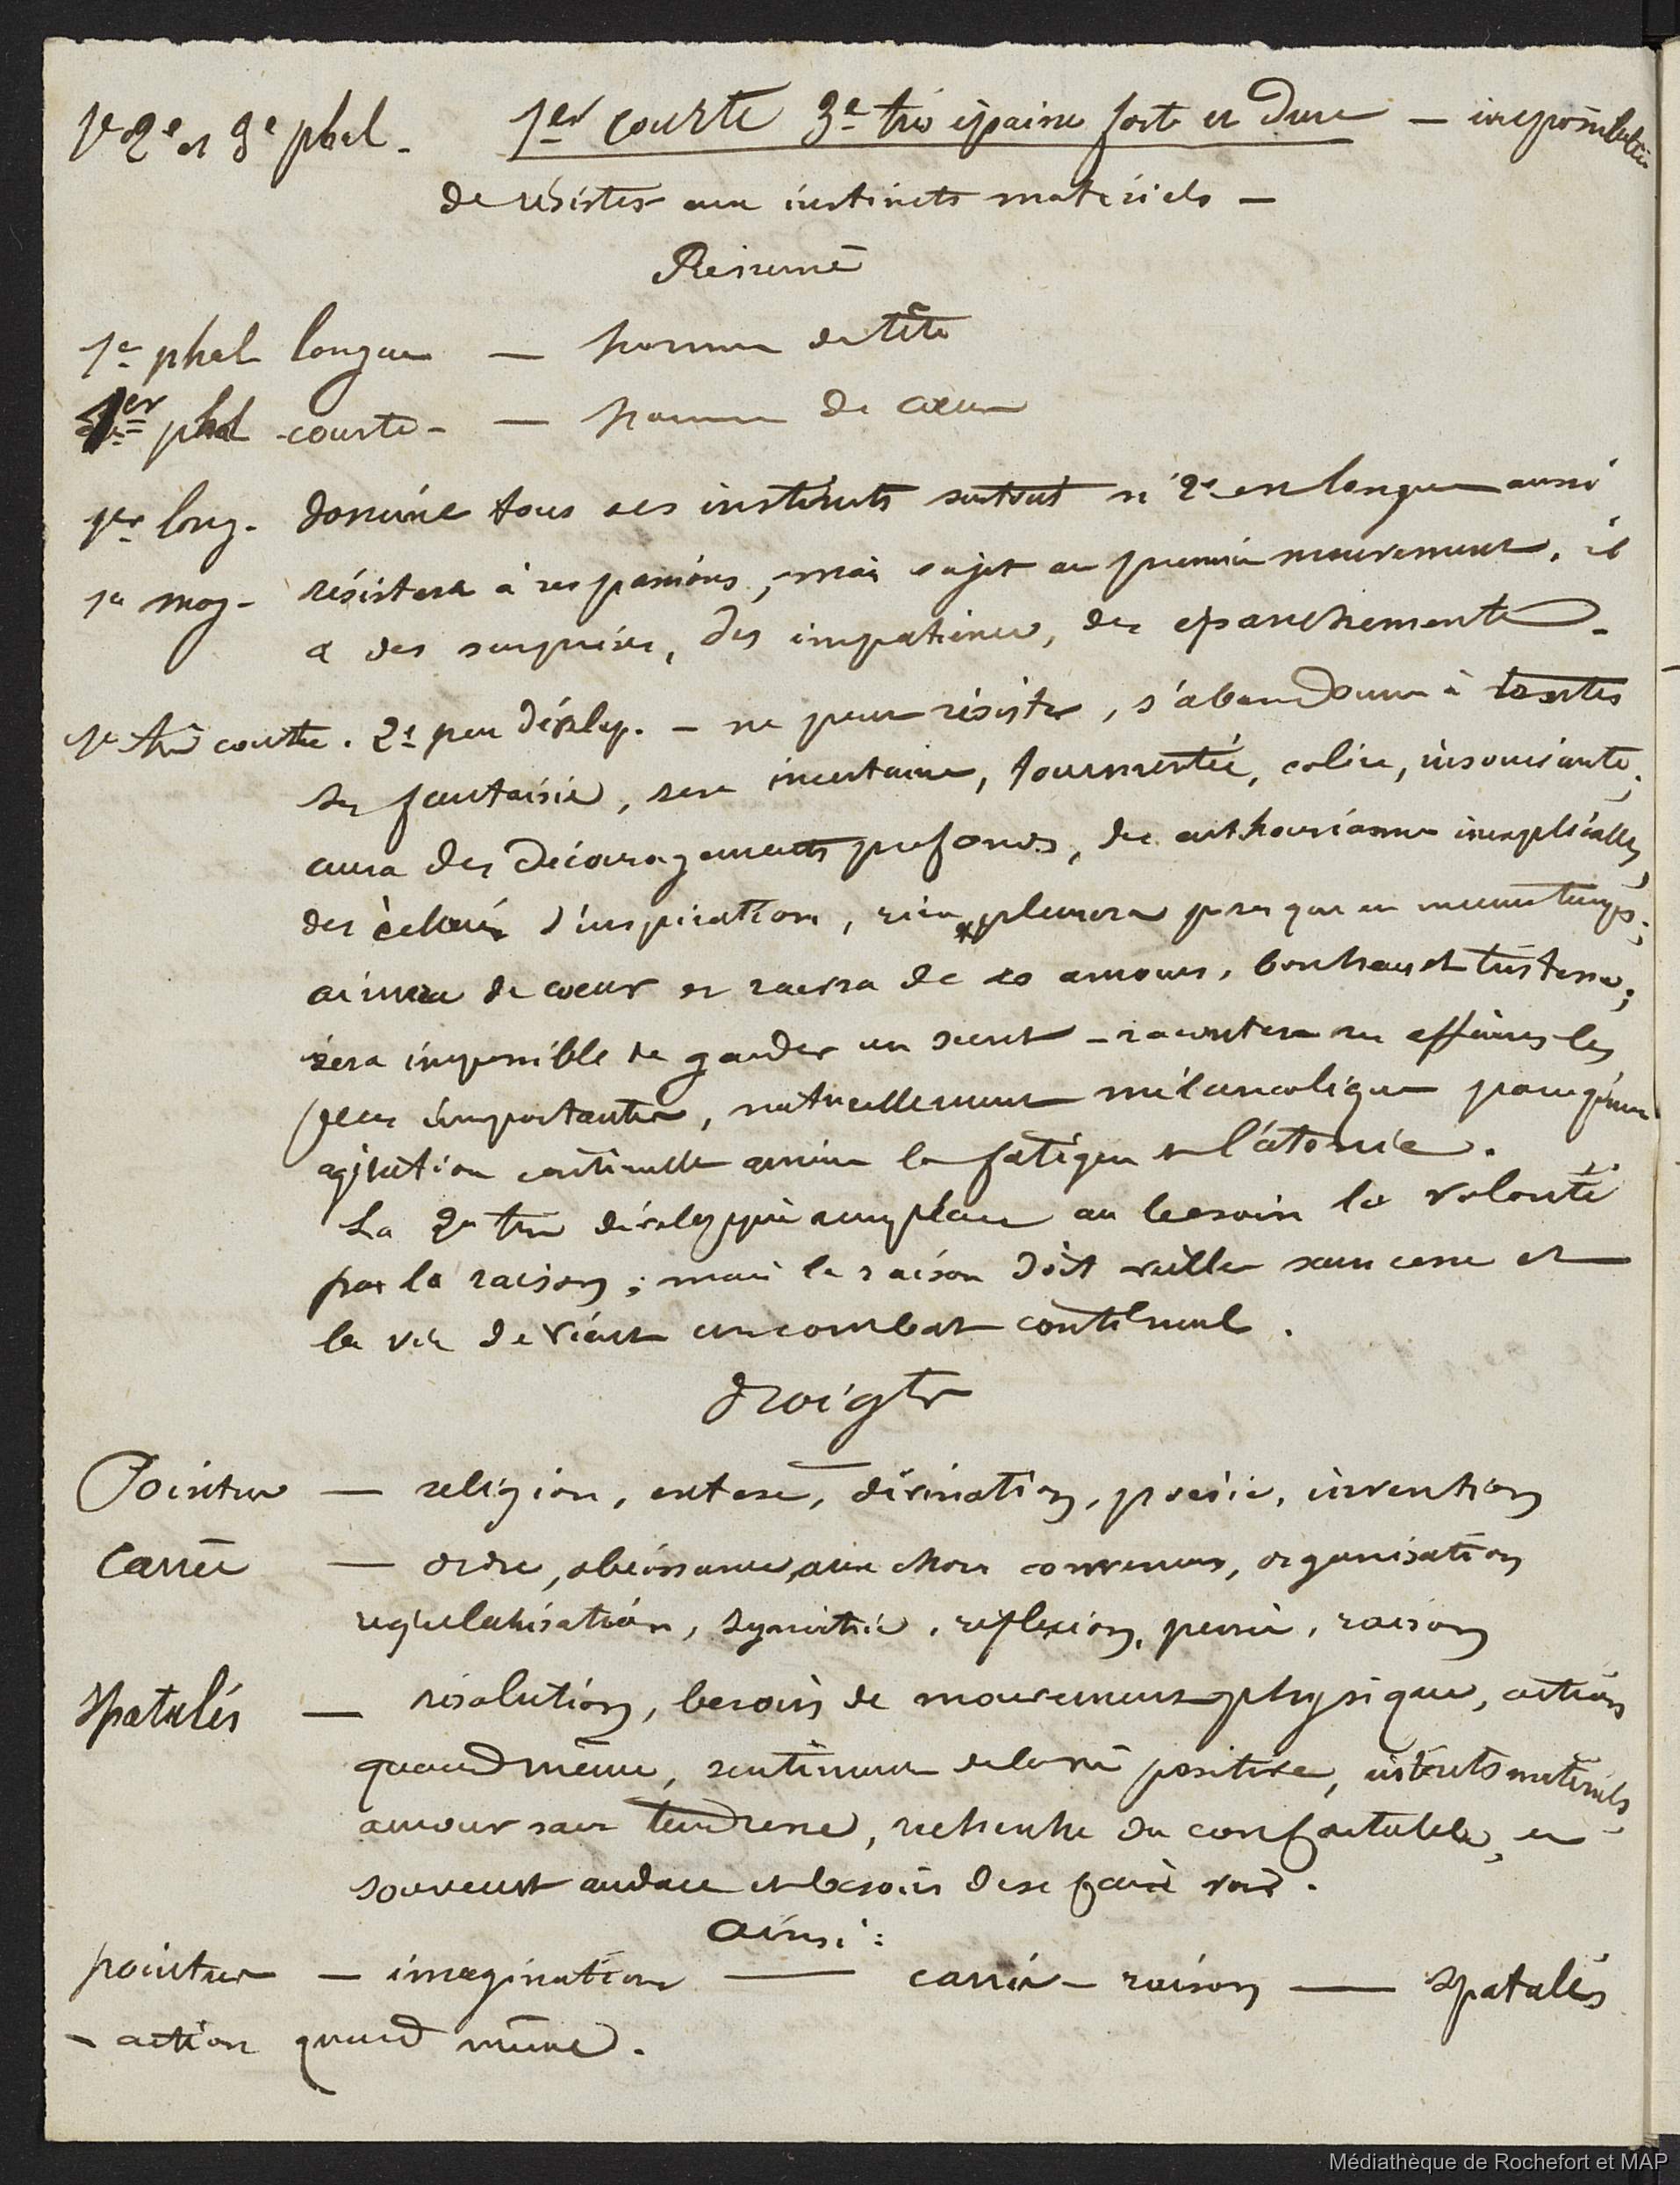 1e 2e et 3e phal. 1er courte 3e très épaisse forte et dure — impossibilité
de résister aux instincts matériels —
Résumé
1e phal longue — homme de tête
1er phal courte — homme de cœur
1er long. domine tous ses instincts surtout si 2e est longue aussi
1e moy- résistera à ses passions, mais sujet au premier mouvement, il
a des surprises, des impatiences, des épanchements.
1e très courte. 2e peu dévelop. — ne peut résister, s'abandonne à toutes
ses fantaisies, sera incertaine, tourmentée, colère, insouciante;
aura des découragements profonds, des enthousiasmes inexplicables,
des éclairs d'inspiration, rira pleurera presque en même temps;
aimera de cœur et saura de amours, bonheur et tristesse;
sera impossible de garder un secret — racontera ses affaires les
plus importantes, naturellement mélancolique parce qu'une
agitation continuelle amène la fatigue et l'atonie.
La 2e très développée remplace au besoin la volonté
par la raison; mais la raison doit veiller sans cesse et
la vie devient un combat continuel.
Doigts
Pointus — religion, extase, divination, poésie, invention
Carrés — ordre, obéissance aux choses convenues, organisation
régularisation, symétrie, réflexion, pensée, raison
Spatulés — résolution, besoin de mouvement physique, action
quand même, sentiment de la vie positive, instincts matériels,
amour sans tendresse, recherche du confortable, et
souvent audace et besoin de se faire voir.
Ainsi:
pointus — imagination — carrés — raison — spatulés
- action quand même.
Médiathèque de Rochefort et MAP